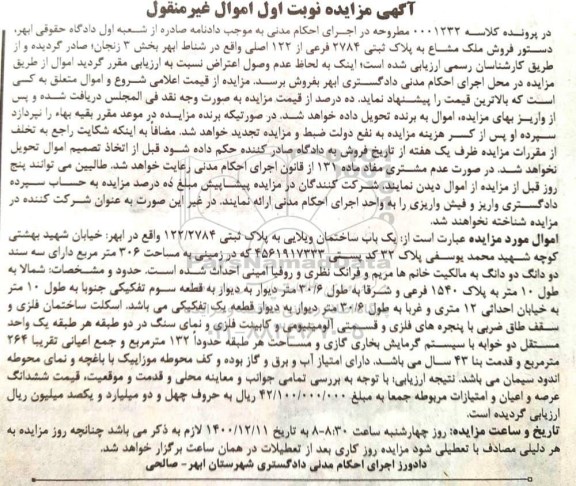 آگهی مزایده نوبت اول اموال غیرمنقول
در پرونده کلاسه ۰۰۰۱۲۳۲ مطروحه در اجرای احکام مدنی به موجب دادنامه صادره از شعبه اول دادگاه حقوقی ابهر،
دستور فروش ملک مشاع به پلاک ثبتی ۲۷۸۴ فرعی از ۱۲۲ اصلی واقع در شناط ابهر بخش ۳ زنجان؛ صادر گردیده و از
طریق کارشناسان رسمی ارزیابی شده است؛ اینک به لحاظ عدم وصول اعتراض نسبت به ارزیابی مقرر گردید اموال از طریق
مزایده در محل اجرای احکام مدنی دادگستری ابهر بفروش برسد. مزایده از قیمت اعلامی شروع و اموال متعلق به کسی
است که بالاترین قیمت را پیشنهاد نماید. ده درصد از قیمت مزایده به صورت وجه نقد فی المجلس دریافت شده و پس
از واریز بهای مزایده، اموال به برنده تحویل داده خواهد شد. در صورتیکه برنده مزایده در موعد مقرر بقیه بهاء را نپردازد
سپرده او پس از کسر هزینه مزایده به نفع دولت ضبط و مزایده تجدید خواهد شد. مضافاً به اینکه شکایت راجع به تخلف
از مقررات مزایده ظرف یک هفته از تاریخ فروش به دادگاه صادر کننده حکم داده شود قبل از اتخاذ تصمیم اموال تحویل
نخواهد شد. در صورت عدم مشتری مفاد ماده ۱۳۱ از قانون اجرای احکام مدنی رعایت خواهد شد. طالبین می توانند پنج
روز قبل از مزایده از اموال دیدن نمایند. شرکت کنندگان در مزایده پیشاپیش مبلغ ده درصد مزایده به حساب سپرده
دادگستری واریز و فیش واریزی را به واحد اجرای احکام مدنی ارائه نمایند. در غیر این صورت به عنوان شرکت کننده در
مزایده شناخته نخواهند شد.
اموال مورد مزایده عبارت است از: یک باب ساختمان ویلایی به پلاک ثبتی ۱۲۲/۲۷۸۴ واقع در ابهر: خیابان شهید بهشتی
کوچه شهید محمد یوسفی پلاک ۳۲ کد پستی ۴۵۶۱۱۱۷۳۳۳ که در زمینی به مساحت ۳۰۶ متر مربع دارای سه سند
دو دانگ دو دانگ به مالکیت خانم ها مریم و فرانک نظری و روفیا امینی احداث شده است. حدود و مشخصات: شمالا به
طول ۱۰ متر به پلاک ۱۵۴۰ فرعی و شرقا به طول ۳۰/۶ متر دیوار به دیوار به قطعه سوم تفکیکی جنوبا به طول ۱۰ متر
به خیابان احداثی ۱۲ متری و غربا به طول ۳۰/۶ متر دیوار به دیوار قطعه یک تفکیکی می باشد. اسکلت ساختمان فلزی و
سقف طاق ضربی با پنجره های فلزی و قسمتی آلومینیومی و کابینت فلزی و نمای سنگ در دو طبقه هر طبقه یک واحد
مستقل دو خوابه با سیستم گرمایش بخاری گازی و مساحت هر طبقه حدوداً ۱۳۲ مترمربع و جمع اعیانی تقریبا ۲۶۴
مترمربع و قدمت بنا ۴۳ سال می باشد. دارای امتیاز آب و برق و گاز بوده و کف محوطه موزاییک با باغچه و نمای محوطه
اندود سیمان می باشد. نتیجه ارزیابی: با توجه به بررسی تمامی جوانب و معاینه محلی و قدمت و موقعیت، قیمت ششدانگ
عرصه و اعیان و امتیازات مربوطه جمعا به مبلغ ۴۲/۱۰۰/۰۰۰/۰۰۰ ریال به حروف چهل و دو میلیارد و یکصد میلیون ریال
ارزیابی گردیده است.
تاریخ و ساعت مزایده: روز چهارشنبه ساعت ۸:۳۰-۸ به تاریخ ۱۴۰۰/۱۲/۱۱ لازم به ذکر می باشد چنانچه روز مزایده به
هر دلیلی مصادف با تعطیلی شود مزایده روز کاری بعد از تعطیلات در همان ساعت برگزار خواهد شد.
دادورز اجرای احکام مدنی دادگستری شهرستان ابهر- صالحی